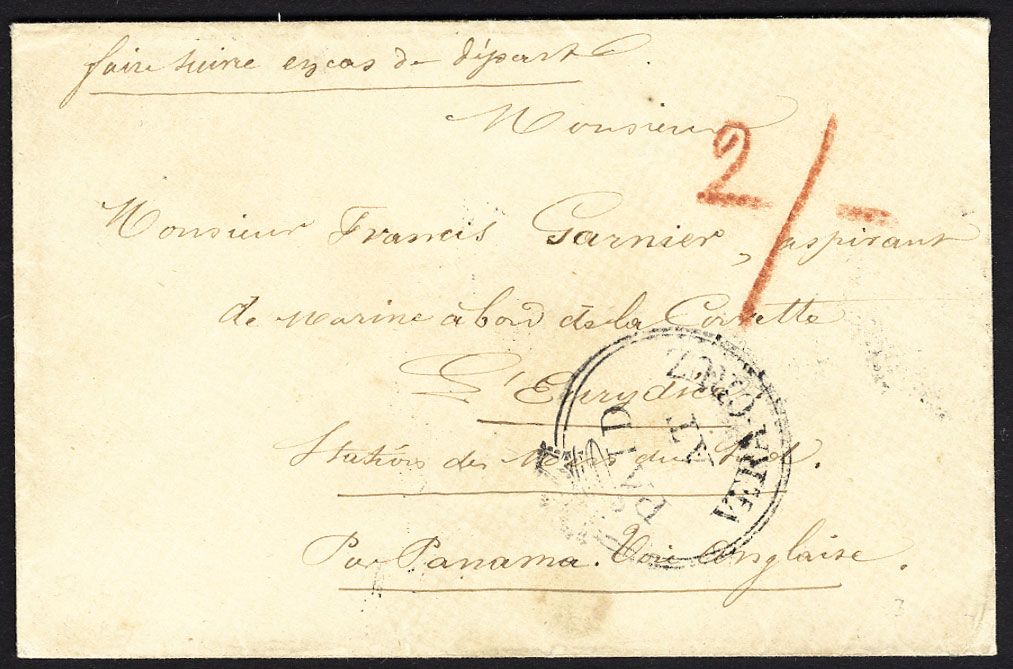 faire suivre en cas de départ
Monsieur
2/-
Monsieur Francis Garnier, aspirant
de marine à bord de la Corvette
L'Eurydice
Station des Mers du Sud.
Par Panama. Voie Anglaise.
PAID
AT
VERA-CRUZ